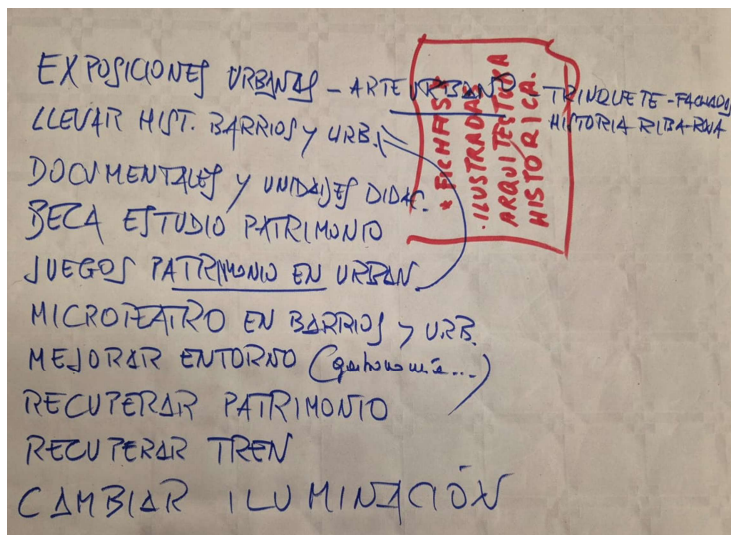 EXPOSICIONES URBANAS - ARTE URBANO - TRINQUETE - FACHADAS
HISTORIA RIBA-ROJA
LLEVAR HIST. BARRIOS y URB.
DOCUMENTALES y UNIDADES DIDAC.
BECA ESTUDIO PATRIMONIO
JUEGOS PATRIMONIO EN URBAN.
MICROTEATRO EN BARRIOS y URB.
MEJORAR ENTORNO (gastronomía...)
RECUPERAR PATRIMONIO
RECUPERAR TREN
CAMBIAR ILUMINACIÓN
ILUSTRADAS
ARQUITECTURA
HISTÓRICA.